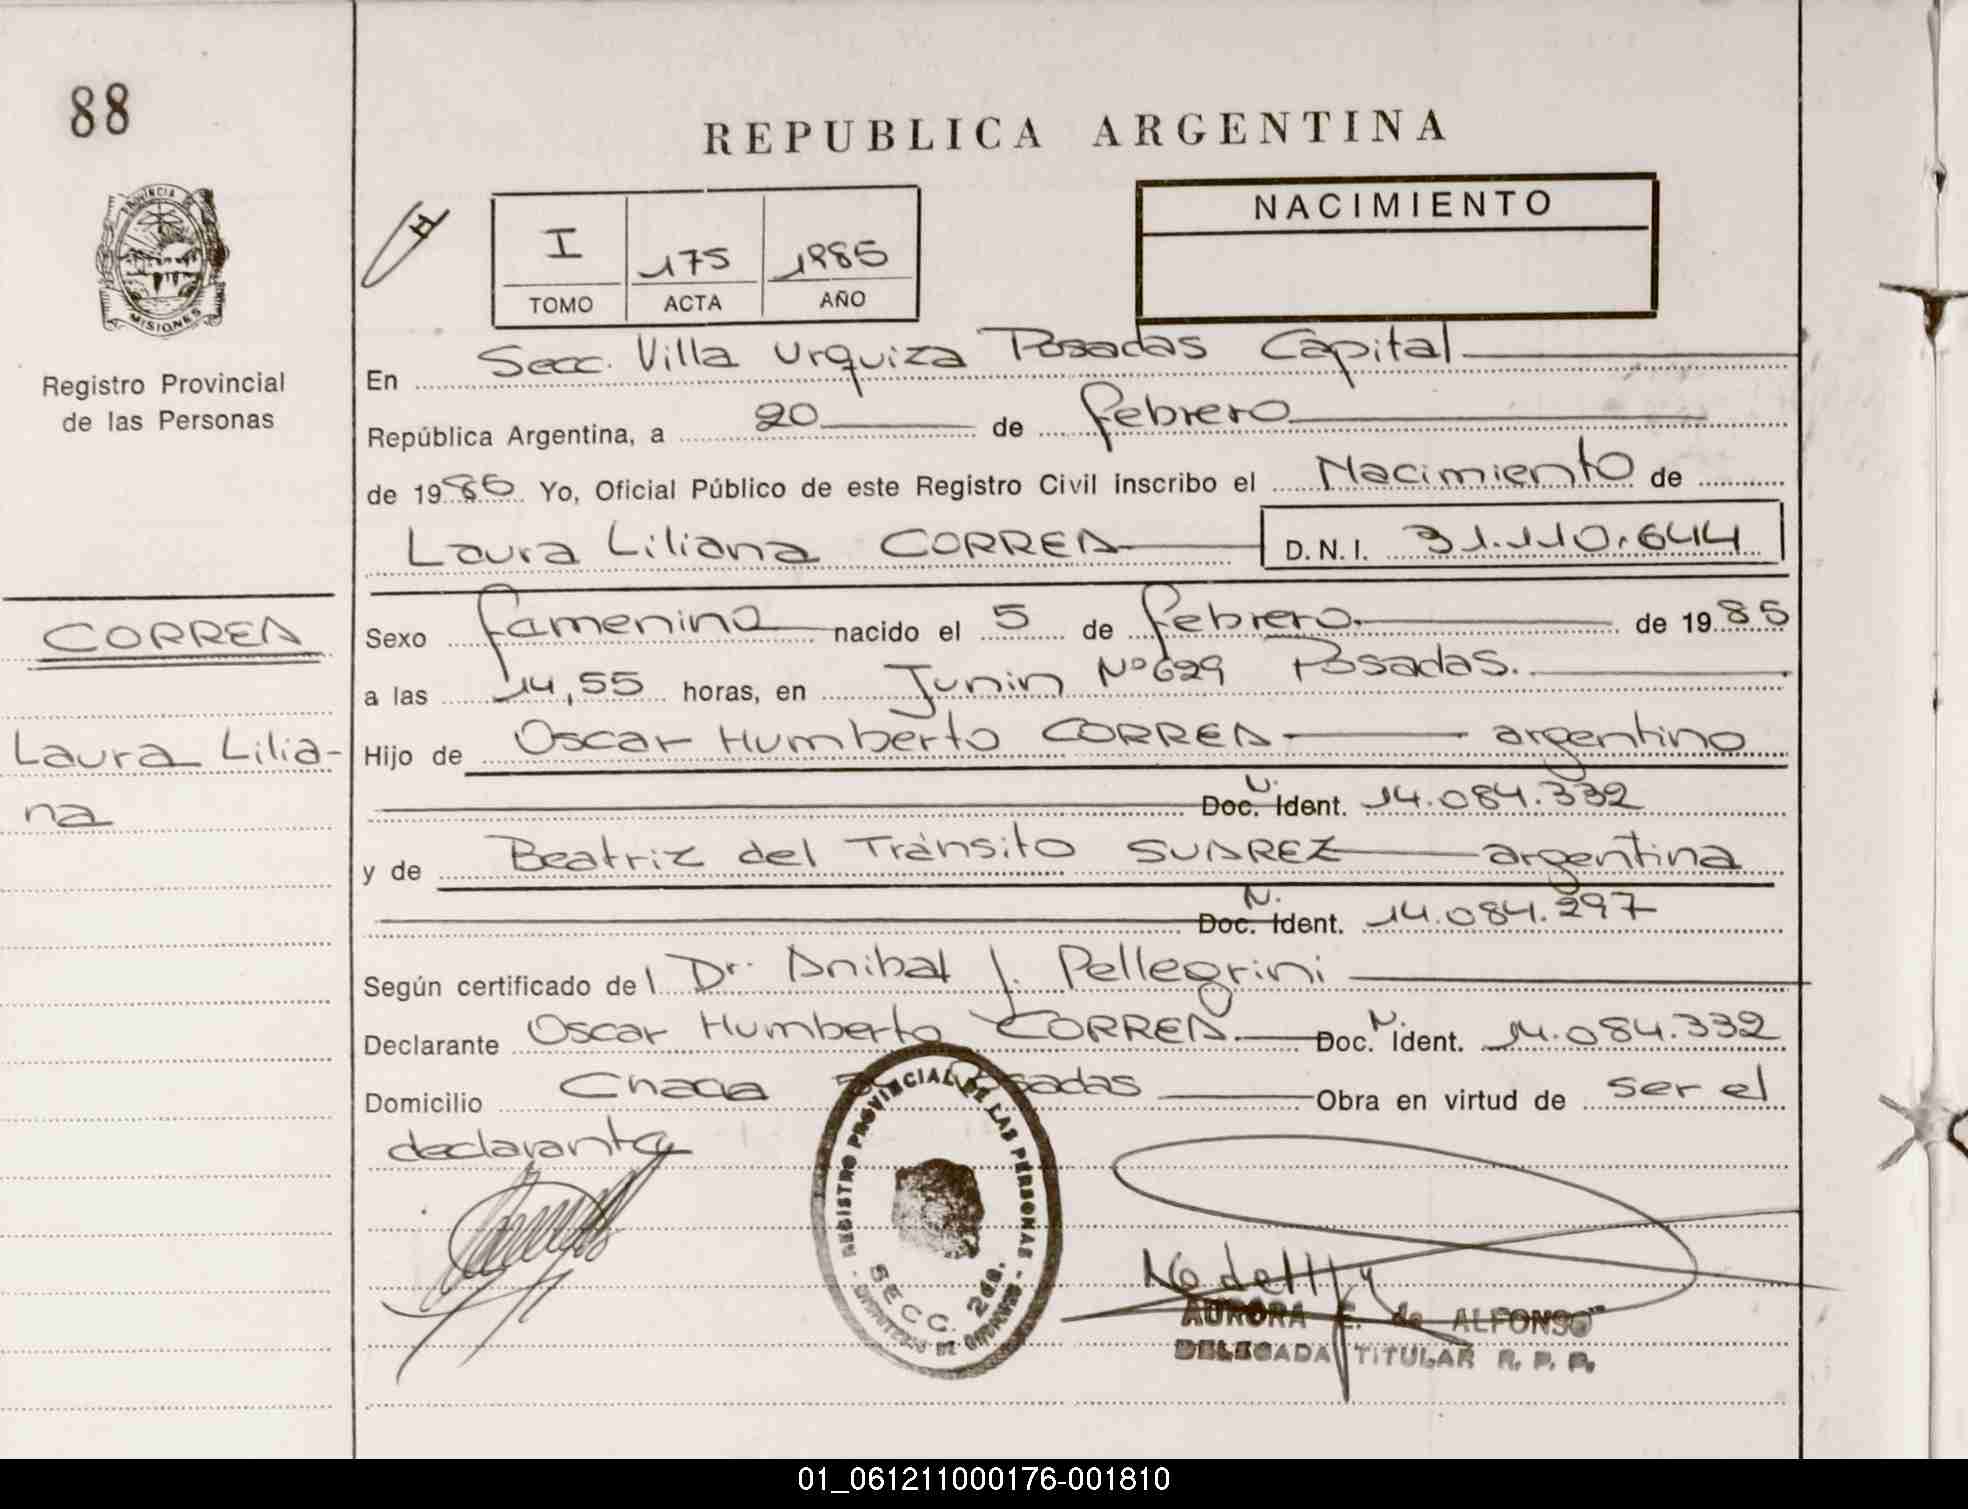 88
REPUBLICA ARGENTINA
PROVINCIA
MISIONES
Registro Provincial
de las Personas
I 175 1985
TOMO ACTA AÑO
NACIMIENTO
En Secc. Villa Urquiza Posadas Capital
República Argentina, a 20 de febrero
de 1985 Yo, Oficial Público de este Registro Civil inscribo el Nacimiento de
Laura Liliana CORREA D.N.I. 31.110.644
CORREA
Laura Lilia-
na
Sexo femenino nacido el 5 de febrero de 1985
a las 14,55 horas, en Junin Nº 629 Posadas.
Hijo de Oscar Humberto CORREA argentino
Doc. N. Ident. 14.084.332
y de Beatriz del Tránsito SUAREZ argentina
Doc. N. Ident. 14.084.297
Según certificado del Dr. Anibal J. Pellegrini
Declarante Oscar Humberto CORREA Doc. N. Ident. 14.084.332
Domicilio Chacra Posadas Obra en virtud de ser el
declarante
REGISTRO PROVINCIAL DE LAS PERSONAS
SECC. 2da.
AURORA E. de ALFONSO
DELEGADA TITULAR R. P. P.
01_061211000176-001810